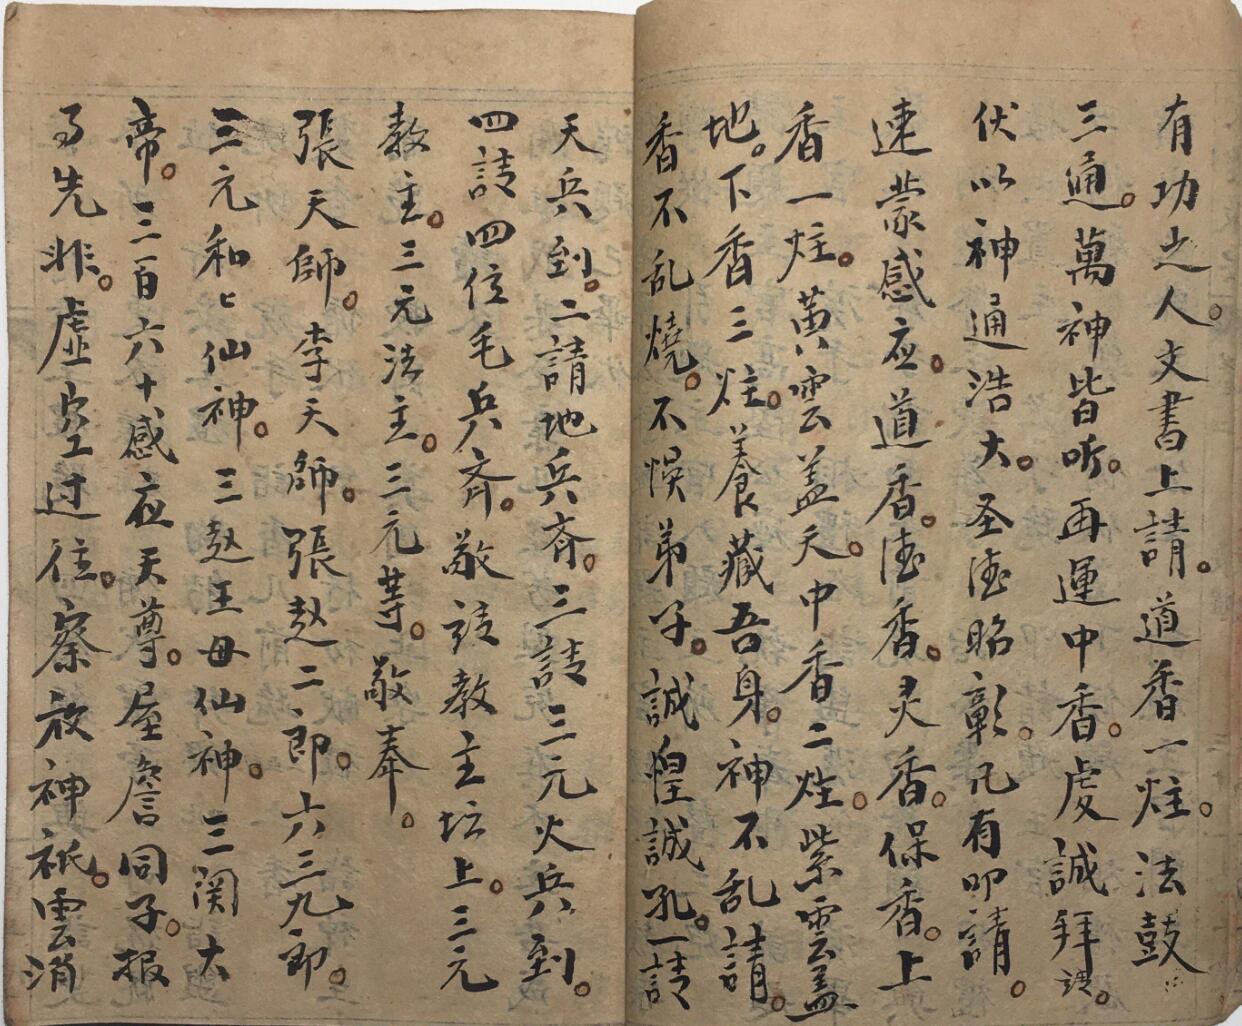 有功之人。文書上請。道香一炷。法鼓
三通。萬神皆听。再運中香。虔誠拜請。
伏以神通浩大。圣德昭彰。凡有叩請。
速蒙感应。道香。德香。灵香。保香。上
香一炷。黄雲盖天。中香二炷。紫雲盖
地。下香三炷。養藏吾身。神不乱請。
香不乱燒。不悞弟子。誠惶誠孔。一請
天兵到。二請地兵齐。三請三元火兵到。
四請四位毛兵齐。敬請教主坛上。三元
教主。三元法主。三元等。敬奉。
張天師。李天師。張趙二郎。六三九郎。
三元和合仙神。三赵王母仙神。三関大
帝。三百六十感应天尊。屋詹同子。报
先非。虚空过往。察放神祇。雲消